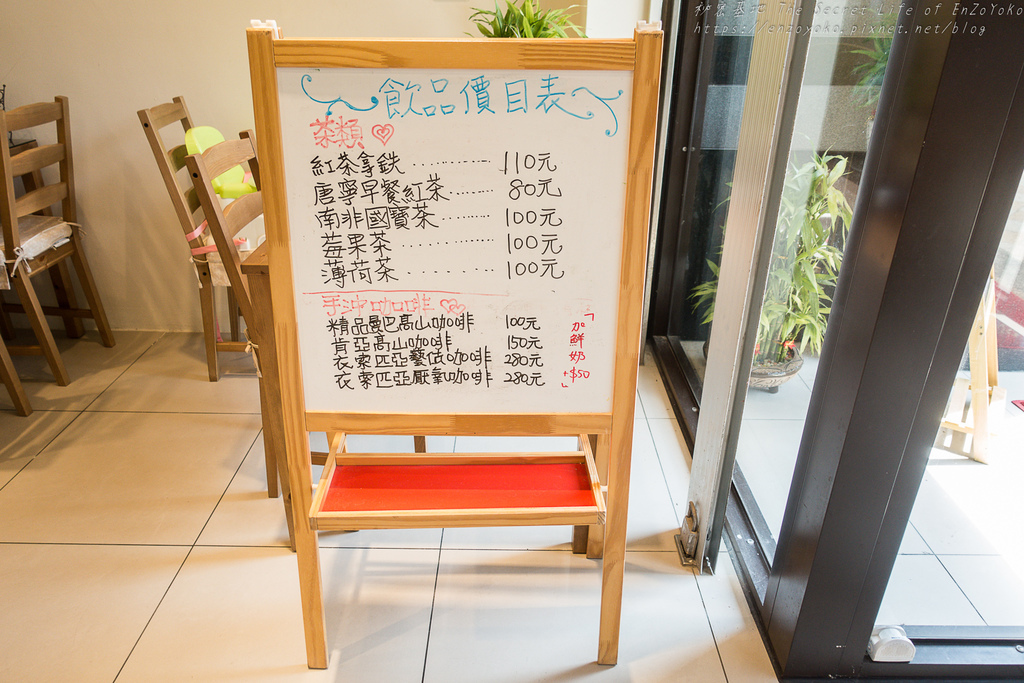 秘密基地 The Secret Life of EnZoYoKo
https://enzoyoko.pixnet.net/blog
飲品價目表
茶類
紅茶拿鉄 110元
唐寧早餐紅茶 80元
南非國寶茶 100元
莓果茶 100元
薄荷茶 100元
手沖咖啡
精品曼巴高山咖啡 100元
肯亞高山咖啡 150元
衣索匹亞藝伎咖啡 280元
衣索匹亞厭氧咖啡 280元
「加鮮奶+$50」